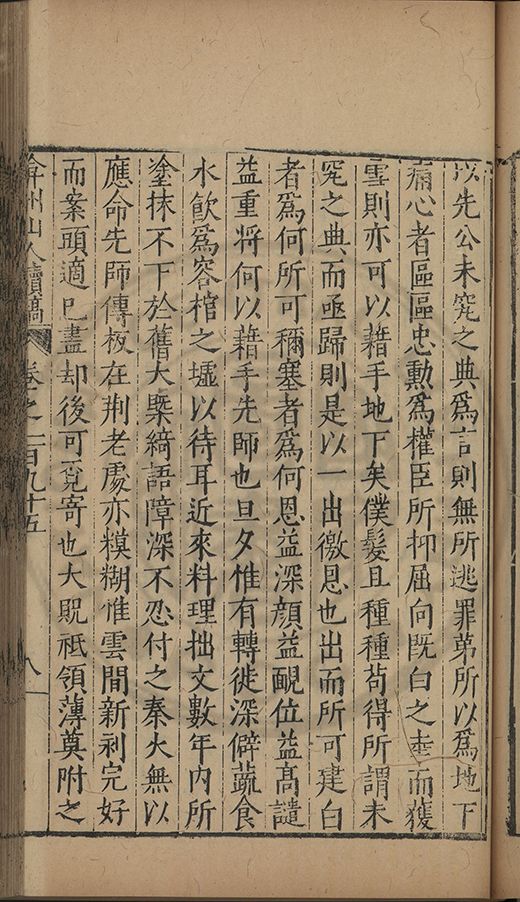 以先公未究之典爲言則無所逃罪第所以爲地下
痛心者區區忠勲爲權臣所抑屈向既白之𡊮而獲
雪則亦可以藉手地下矣僕髮且種種苟得所謂未
究之典而亟歸則是以一出徼恩也出而所可建白
者爲何所可彌塞者爲何恩益深顔益靦位益髙譴
益重將何以藉手先師也旦夕惟有轉徙深僻蔬食
水飲爲容棺之墟以待耳近來料理拙文數年内所
塗抹不下於舊大槩綺語障深不忍付之秦火無以
應命先師傳板在荆老處亦糢糊惟雲間新刹完好
而案頭適已盡却後可覓寄也大貺祗領薄奠附之
弇州山人續稿 卷之一百九十五 八